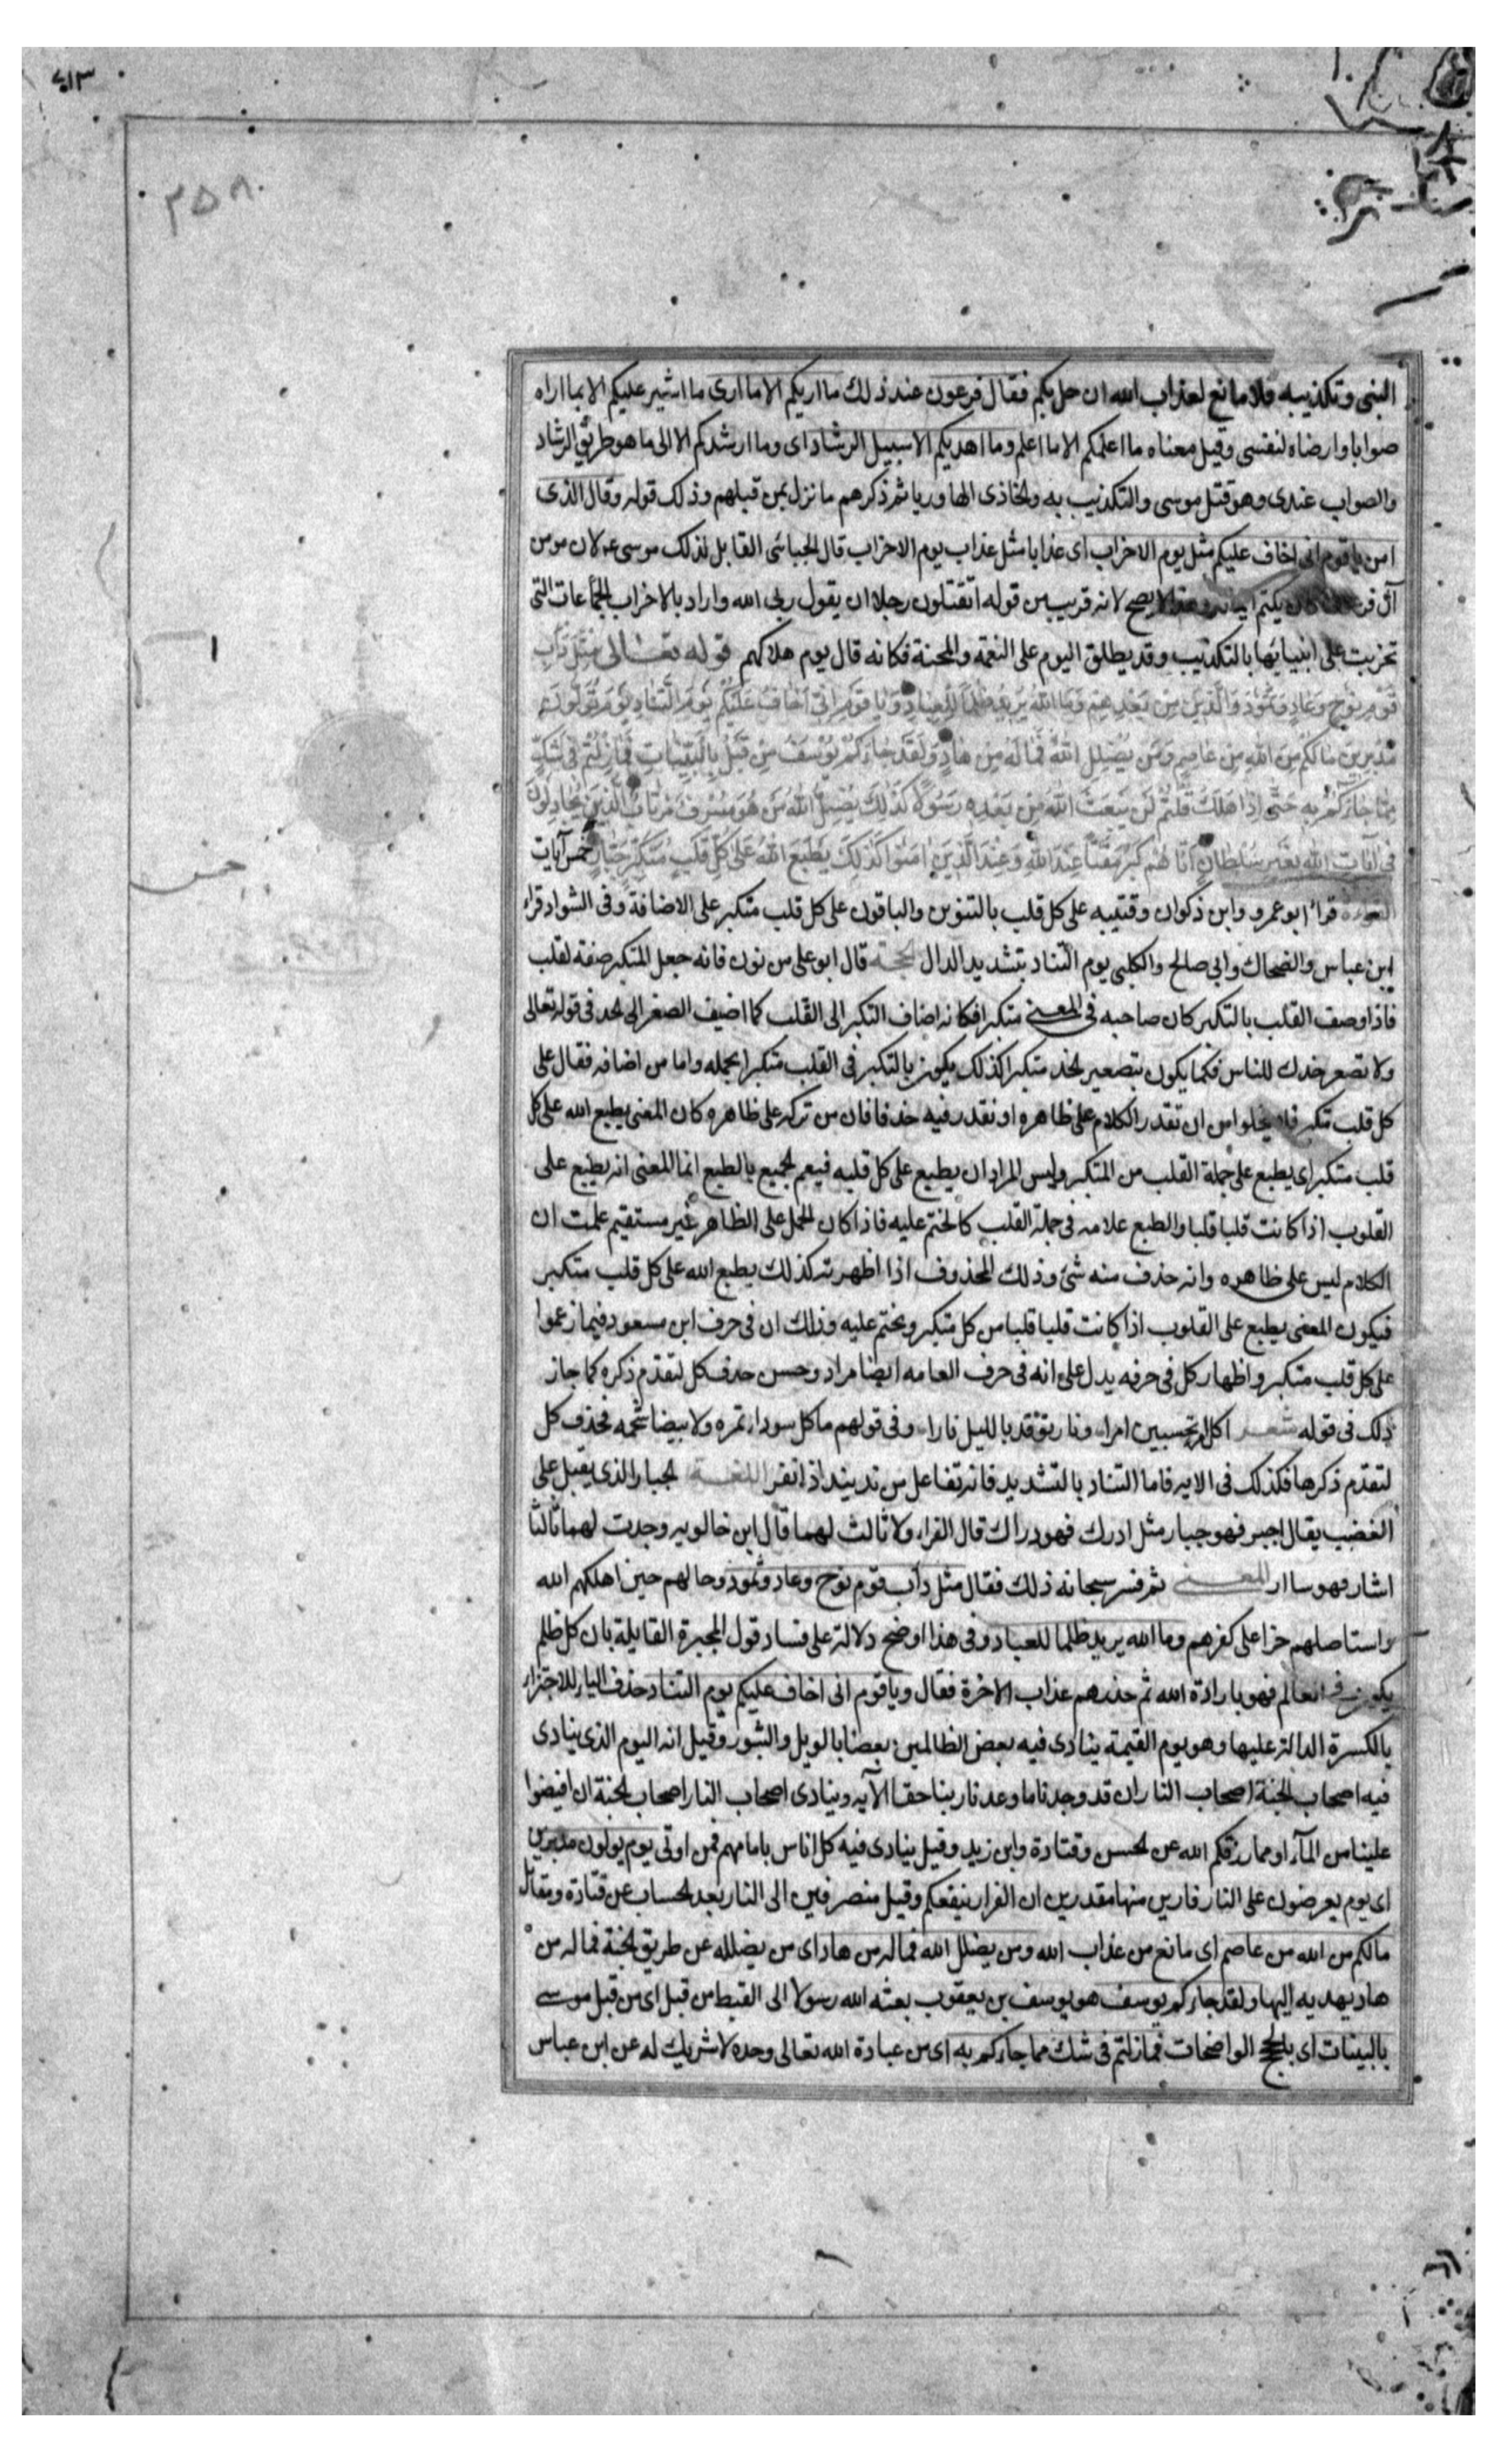 ٤١٣
٣٥٨
النبى وتكذيبه فلا مانع لعذاب الله ان حل بكم فقال فرعون عند ذلك ما اريكم الا ما ارى ما اشير عليكم الا بما اراه
صوابا وارضاه لنفسى وقيل معناه ما اعلمكم الا ما اعلم وما اهديكم الا سبيل الرشاد اى وما ارشدكم الا الى ما هو طريق الرشاد
والصواب عندى وهو قتل موسى والتكذيب به واتخاذى الها وربا ثم ذكرهم ما نزل بمن قبلهم وذلك قوله وقال الذى
امن يا قوم انى اخاف عليكم مثل يوم الاحزاب اى عذابا مثل عذاب يوم الاحزاب قال الجبائى القايل لذلك موسى ع لان مومن
آل فرعون كان يكتم ايمانه وهذا لا يصح لانه قريب من قوله اتقتلون رجلا ان يقول ربى الله واراد بالاحزاب الجماعات التى
تحزبت على انبيائها بالتكذيب وقد يطلق اليوم على النعمة والمحنة فكانه قال يوم هلاكهم قوله تعالى مِثْلَ دَأْبِ
قَوْمِ نُوحٍ وَعَادٍ وَثَمُودَ وَالَّذِينَ مِنْ بَعْدِهِمْ وَمَا اللهُ يُرِيدُ ظُلْمًا لِلْعِبَادِ وَيَا قَوْمِ اِنِّى اَخَافُ عَلَيْكُمْ يَوْمَ التَّنَادِ يَوْمَ تُوَلُّونَ
مُدْبِرِينَ مَا لَكُمْ مِنَ اللهِ مِنْ عَاصِمٍ وَمَنْ يُضْلِلِ اللهُ فَمَا لَهُ مِنْ هَادٍ وَلَقَدْ جَاءَكُمْ يُوسُفُ مِنْ قَبْلُ بِالْبَيِّنَاتِ فَمَا زِلْتُمْ فِى شَكٍّ
مِمَّا جَاءَكُمْ بِهِ حَتَّى اِذَا هَلَكَ قُلْتُمْ لَنْ يَبْعَثَ اللهُ مِنْ بَعْدِهِ رَسُولًا كَذَلِكَ يُضِلُّ اللهُ مَنْ هُوَ مُسْرِفٌ مُرْتَابٌ الَّذِينَ يُجَادِلُونَ
فِى آيَاتِ اللهِ بِغَيْرِ سُلْطَانٍ اَتَاهُمْ كَبُرَ مَقْتًا عِنْدَ اللهِ وَعِنْدَ الَّذِينَ امَنُوا كَذَلِكَ يَطْبَعُ اللهُ عَلَى كُلِّ قَلْبِ مُتَكَبِّرٍ جَبَّارٍ خمس آيات
خمس
القراءة قراء ابو عمرو وابن ذكوان وقتيبه على كل قلب بالتنوين والباقون على كل قلب متكبر على الاضافة وفى الشواذ قراءة
ابن عباس والضحاك وابى صالح والكلبى يوم التناد بتشديد الدال الحجة قال ابو على من نون فانه جعل المتكبر صفة لقلب
فاذا وصف القلب بالتكبر كان صاحبه فى المعنى متكبرا فكانه اضاف التكبر الى القلب كما اضيف الصعر الى الخد فى قوله تعالى
ولا تصعر خدك للناس فكما يكون بتصعير الخد متكبرا كذلك يكون بالتكبر فى القلب متكبرا بجمله واما من اضافه فقال على
كل قلب متكبر فلا يخلوا من ان تقدر الكلام على ظاهره او نقدر فيه حذفا فان من تركه على ظاهره كان المعنى يطبع الله على كل
قلب متكبر اى يطبع على جملة القلب من المتكبر وليس المراد ان يطبع على كل قلبه فيعم الجميع بالطبع انما المعنى انه يطبع على
القلوب اذا كانت قلبا قلبا والطبع علامه فى جملة القلب كالختم عليه فاذا كان الحمل على الظاهر غير مستقيم علمت ان
الكلام ليس على ظاهره وانه حذف منه شئ وذلك المحذوف اذا اظهرته كذلك يطبع الله على كل قلب متكبر
فيكون المعنى يطبع على القلوب اذا كانت قلبا قلبا من كل متكبر ويختم عليه وذلك ان فى حرف ابن مسعود فيما زعموا
على كل قلب متكبر واظهار كل فى حرفه يدل على انه فى حرف العامه ايضا مراد وحسن حذف كل لتقدم ذكره كما جاز
ذلك فى قوله شعر اكل امرء تحسبين امراء ونار توقد بالليل نارا وفى قولهم ما كل سوداء تمره ولا بيضا شحمه فحذف كل
لتقدم ذكرها فكذلك فى الايه فاما التناد بالتشديد فانه تفاعل من ند يند اذا نفر اللغة الجبار الذى يقبل على
الغضب يقال اجبر فهو جبار مثل ادرك فهو دراك قال الفراء ولا ثالث لهما قال ابن خالويه وجدت لهما ثالثا
اشار فهو ساار المعنى ثم فسر سبحانه ذلك فقال مثل دأب قوم نوح وعاد وثمود وحالهم حين اهلكهم الله
واستاصلهم جزا على كفرهم وما الله يريد ظلما للعباد وفى هذا اوضح دلالة على فساد قول المجبرة القايلة بان كل ظلم
يكون فى العالم فهو بارادة الله ثم حذرهم عذاب الاخرة فقال ويا قوم انى اخاف عليكم يوم التناد حذف الياء للاجتزاء
بالكسرة الدالة عليها وهو يوم القيمة ينادى فيه بعض الظالمين بعضا بالويل والثبور وقيل انه اليوم الذى ينادى
فيه اصحاب الجنة اصحاب النار ان قد وجدنا ما وعدنا ربنا حقا الآيه وينادى اصحاب النار اصحاب الجنة ان افيضوا
علينا من المآء او مما رزقكم الله عن الحسن وقتادة وابن زيد وقيل ينادى فيه كل اناس بامامهم فمن اوتى يوم يولون مدبرين
اى يوم يعرضون على النار فارين منها مقدرين ان الفرار ينفعكم وقيل منصرفين الى النار بعد الحساب عن قتادة ومقاتل
ما لكم من الله من عاصم اى مانع من عذاب الله ومن يضلل الله فما له من هاد اى من يضلله عن طريق الجنة فما له من
هاد يهديه اليها ولقد جاءكم يوسف هو يوسف بن يعقوب بعثه الله رسولا الى القبط من قبل اى من قبل موسى
بالبينات اى بالحجج الواضحات فما زلتم فى شك مما جاءكم به اى من عبادة الله تعالى وحده لا شريك له عن ابن عباس